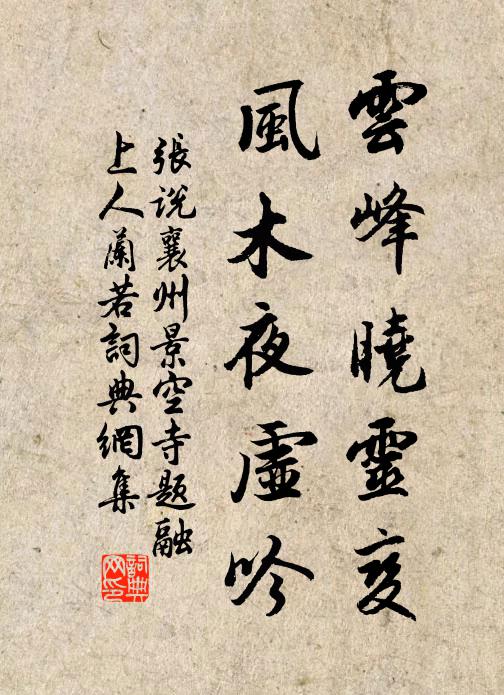 雲峰曉靈変
風木夜虛吟
張說襄州景空寺題融
上人蘭若詞典網集
詞典
网印